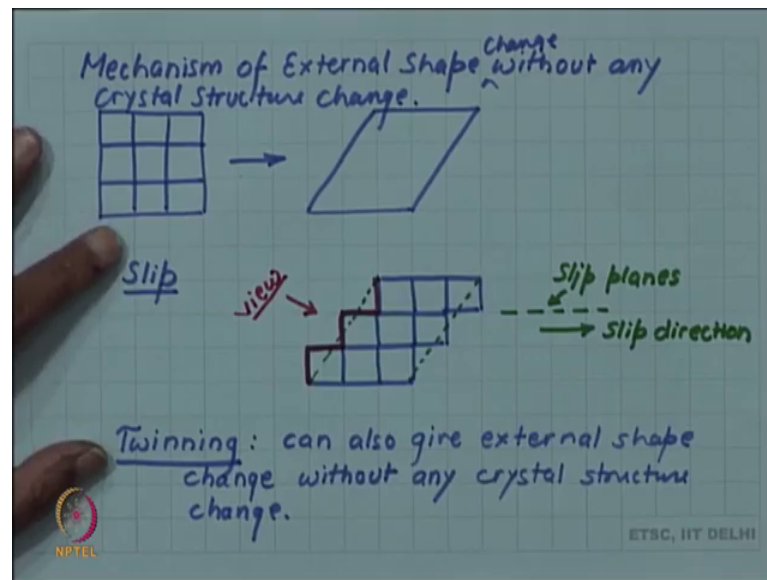 Mechanism of External Shape change without any
crystal structure change.
Slip
view
Slip planes
Slip direction
Twinning : can also give external shape
change without any crystal structure
change.
NPTEL
ETSC, IIT DELHI